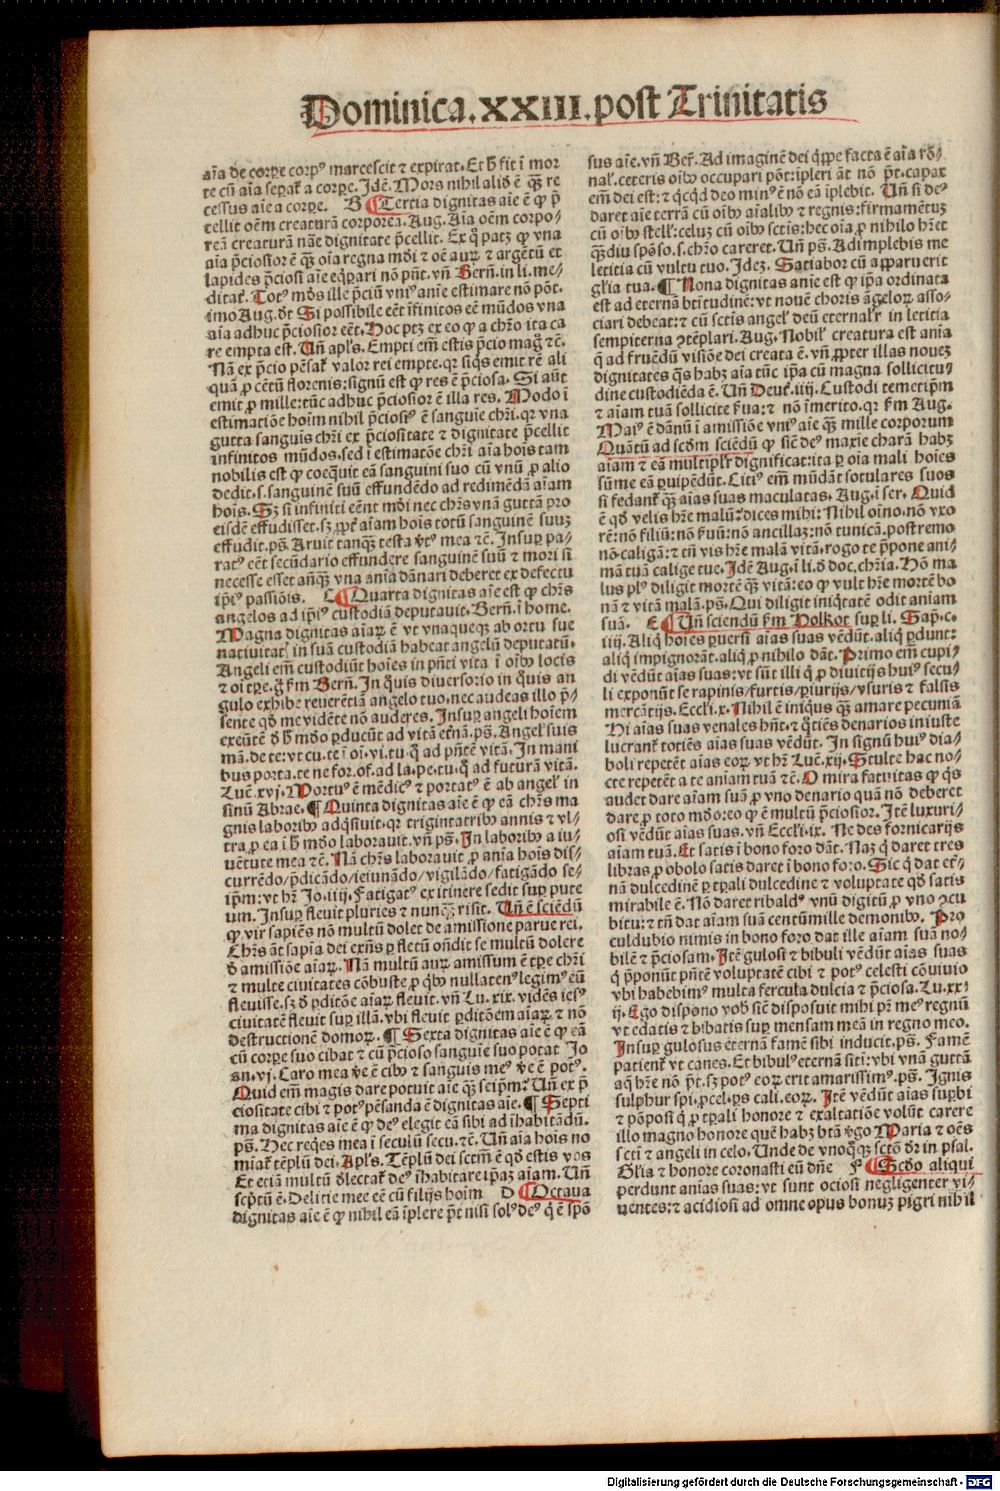 Dominica.XXIII.post Trinitatis
aīa de corpe corpꝰ marcescit ⁊ expirat. Et h̄ fit ī mor
te cū aīa sepat᷑ a corpe. Idē. Mors nihil aliđ ē q̄ꝫ re
cessus aīe a corpe. B Tertia dignitas aīe ē ꝙ p̄
cellit oēm creaturā corporeā. Aug. Aīa oēm corpo-
reā creaturā nāe dignitate p̄cellit. Ex q̊ patꝫ ꝙ vna
aīa p̄ciosior ē q̄ꝫ oīa regna mūdi ⁊ oē auꝝ ⁊ argētū et
lapides p̄ciosi aīe eq̇pari nō pn̄t. vn̄ Bern̄. in li. me-
ditat᷑. Totꝰ mūdꝰ ille p̄ciū vniꝰ anīe estimare nō pōt.
imo Aug. dt̄ Si possibile eēt īfinitos eē mūdos vna
aīa adhuc p̄ciosior eēt. Hoc ptꝫ ex eo ꝙ a chr̄o ita ca
re empta est. Un̄ apl̓s. Empti em̄ estis p̄cio mag̊ ⁊ē.
Nā ex p̄cio pēsat᷑ valor rei empte. qꝛ siq̇s emit rē ali
quā ꝓ cētū florenis: signū est ꝙ res ē p̄ciosa. Si aūt
emit ꝓ mille: tūc adhuc p̄ciosior ē illa res. Modo ī
estimatiōe hoīm nihil p̄ciosiꝰ ē sanguīe chr̄i. qꝛ vna
gutta sanguīs chr̄i ex p̄ciositate ⁊ dignitate p̄cellit
infinitos mūdos. sed ī estimatōe chr̄i aīa hoīs tam
nobilis est ꝙ coeq̄uit eā sanguini suo cū vnū ꝓ alio
dedit. s. sanguinē suū effundēdo ad redimēdā aīam
hoīs. Sꝫ si infiniti eēnt mūdi nec chr̄s vnā guttā pro
eisdē effudisset. sꝫ ꝓpt᷑ aīam hoīs totū sanguinē suuꝫ
effudit. ps. Aruit tanq̄ꝫ testa v̄tꝰ mea ⁊ē. Insuꝑ pa-
ratꝰ eēt secūdario effundere sanguinē suū ⁊ mori si
necesse esset anteq̄ꝫ vna anīa dānari deberet ex defectu
ip̄iꝰ passiōis. C Quarta dignitas aīe est ꝙ chr̄s
angelos ad ip̄iꝰ custodiā deputauit. Bern̄. ī home.
Magna dignitas aīaꝝ ē vt vnaqueqꝫ ab ortu sue
natiuitat᷑ in suā custodiā habeat angelū deputatū.
Angeli em̄ custodiūt hoīes in pn̄ti vita ī oībꝰ locis
⁊ oī tꝑe. g̊ ẜm Bern̄. In q̊uis diuersorio in q̊uis an
gulo exhibe reuerētiā angelo tuo. nec audeas illo p̄-
sente qd̄ me vidēte nō auderes. Insuꝑ angeli hoīem
exeūtē d̄ h̄ mūdo ꝑducūt ad vitā et̓nā. ps. Angel̓ suis
mā. de te: vt cu. te ī oī. vi. tu. q̊ ad pn̄tē vitā. In mani
bus porta. te ne for. of. ad la. pe. tu. q̊ ad futurā vitā.
Luē. xvj. Mortuꝰ ē mēdicꝰ ⁊ portatꝰ ē ab angel̓ in
sinū Abrae. ¶ Quinta dignitas aīe ē ꝙ eā chr̄s ma
gnis laboribꝰ adq̇siuit. qꝛ trigintatribꝰ annis ⁊ vl-
tra ꝓ ea ī h̄ mūdo laborauit. vn̄ ps. In laboribꝰ a iu-
uētute mea ⁊ē. Nā chr̄s laborauit ꝓ anīa hoīs dis-
currēdo/p̄dicādo/ieiunādo/vigilādo/fatigādo se-
ip̄m: vt hr̄ Io. iiij. Fatigatꝰ ex itinere sedit suꝑ pute
um. Insuꝑ fleuit pluries ⁊ nunq̄ꝫ risit. Un̄ ē sciēdū
ꝙ vir sapiēs nō multū dolet de amissione parue rei.
Chr̄s āt sapīa dei exn̄s ꝑ fletū on̄dit se multū dolere
d̄ amissiōe aīaꝝ. Nā multū auꝝ amissum ē tꝑe chr̄i
⁊ multe ciuitates cōbuste ꝓ q̇bꝰ nullatenꝰ legimꝰ eū
fleuisse. sꝫ d̄ ꝑditōe aīaꝝ fleuit. vn̄ Lu. xix. vidēs iesꝰ
ciuitatē fleuit suꝑ illā. vbi fleuit ꝑditiōem aīaꝝ ⁊ nō
destructionē domoꝝ. ¶ Sexta dignitas aīe ē ꝙ eā
cū corpe suo cibat ⁊ cū p̄cioso sanguīe suo potat Io
an. vj. Caro mea v̄e ē cibꝰ ⁊ sanguis meꝰ v̄e ē potꝰ.
Quid em̄ magis dare potuit aīe q̄ꝫ seip̄m: Un̄ ex p̄
ciositate cibi ⁊ potꝰ pēsanda ē dignitas aīe. ¶ Septi
ma dignitas aīe ē ꝙ deꝰ elegit eā sibi ad īhabitādū.
ps. Hec req̇es mea ī seculū secu. ⁊ē. Un̄ aīa hoīs no
miat᷑ tēplū dei. Apl̓s. Tēplū dei sctm̄ ē qd̄ estis vos
Et etiā multū d̄lectat᷑ deꝰ īhabitare ip̄aꝫ aīam. Un̄
scptū ē. Delitie mee eē cū filijs hoīm D Octaua
dignitas aīe ē ꝙ nihil eā īplere pt̄ nisi solꝰ deꝰ q̇ ē spō
sus aīe. vn̄ Ber̄. Ad imaginē dei q̇ppe facta ē aīa rō-
nal̓. ceteris oībꝰ occupari pōt: ipleri āt nō pt̄. capax
em̄ dei est: ⁊ q̇cqd̄ deo minꝰ ē nō eā īplebit. Un̄ si deꝰ
daret aīe terrā cū oībꝰ aīalibꝰ ⁊ regnis: firmamētuꝫ
cū oībꝰ stell̓: celuꝫ cū oībꝰ sctīs: hec oīa ꝓ nihilo hr̄et
q̄ꝫdiu spōso. s. chr̄o careret. Un̄ ps. Adimplebis me
letitia cū vultu tuo. Ideꝫ. Satiabor cū apparuerit
gl̓ia tua. ¶ Nona dignitas anīe est ꝙ ip̄a ordinata
est ad eternā btītudinē: vt nouē choris āgeloꝝ asso-
ciari debeat: ⁊ cū sctīs angel̓ deū eternal̓r in letitia
sempiterna ꝯtēplari. Aug. Nobil̓ creatura est anīa
q̄ ad fruēdū visiōe dei creata ē. vn̄ ꝓpter illas nouez
dignitates q̄s habꝫ aīa tūc ip̄a cū magna sollicitu-
dine custodiēda ē. Un̄ Deut̓. iiij. Custodi temetip̄m
⁊ aīam tuā sollicite ẜua: ⁊ nō īmerito. qꝛ ẜm Aug.
Maiꝰ ē dānū ī amissiōe vniꝰ aīe q̄ꝫ mille corporum
Quātū ad scdm̄ sciēdū ꝙ sic̄ deꝰ maxie charā habꝫ
aīam ⁊ eā multipl̓r dignificat: ita ꝑ oīa mali hoīes
sūme eā ꝑuipēdūt. Citiꝰ em̄ mūdāt sotulares suos
si fedant᷑ q̄ꝫ aīas suas maculatas. Aug. ī ser. Quid
ē qd̄ velis hr̄e malū: dices mihi: Nihil oīno. nō vxo
rē: nō filiū: nō ẜuū: nō ancillaꝫ: nō tunicā. postremo
nō caligā: ⁊ tn̄ vis hr̄e malā vitā. rogo te p̄pone ani-
mā tuā calige tue. Idē Aug. ī li. d̄ doc. chr̄ia. Hō ma
lus plꝰ diligit mortē q̄ꝫ vitā: eo ꝙ vult hr̄e mortē bo
nā ⁊ vitā malā. ps. Qui diligit iniq̇tatē odit aniam
suā. E Un̄ sciendū ẜm Holkot suꝑ li. Sap̄. c.
iiij. Aliq̇ hoīes ꝑuersi aīas suas vēdūt. aliq̇ ꝑdunt:
aliq̇ impignorāt. aliq̇ ꝓ nihilo dāt. Primo em̄ cupi-
di vēdūt aīas suas: vt sūt illi q̇ ꝓ diuitijs huiꝰ secu-
li exponūt se rapinis/furtis/ꝑiurijs/vsuris ⁊ falsis
mercātijs. Eccl̓i. x. Nihil ē iniqꝰ q̄ꝫ amare pecuniā
Hi aīas suas venales hn̄t. ⁊ q̊tiēs denarios iniuste
lucrant᷑ totiēs aīas suas vēdūt. In signū huiꝰ dia-
boli repetēt aīas eoꝝ. vt hr̄ Luē. xij. Stulte hac no-
cte repetēt a te aniam tuā ⁊ē. O mira fatuitas ꝙ q̇s
audet dare aīam suā ꝓ vno denario quā nō deberet
dare ꝓ toto mūdo: eo ꝙ ē multū p̄ciosior. Itē luxuri-
osi vēdūt aīas suas. vn̄ Eccl̓i. ix. Ne des fornicarijs
aīam tuā. Et satis ī bono foro dāt. Naꝫ q̇ daret tres
libras ꝓ obolo satis daret ī bono foro. Sic q̇ dat et̓-
nā dulcedinē ꝑ tꝑali dulcedine ⁊ voluptate qd̄ satis
mirabile ē. Nō daret ribaldꝰ vnū digitū ꝓ vno ꝯcu
bitu: ⁊ tn̄ dat aīam suā centūmille demonibꝰ. Pro
culdubio nimis in bono foro dat ille aīam suā no-
bilē ⁊ p̄ciosam. Itē gulosi ⁊ bibuli vēdūt aīas suas
q̇ p̄ponūt pn̄tē voluptatē cibi ⁊ potꝰ celesti cōuiuio
vbi habebimꝰ multa fercula dulcia ⁊ p̄ciosa. Lu. xx-
ij. Ego dispono vob̄ sic̄ disposuit mihi pr̄ meꝰ regnū
vt edatis ⁊ bibatis suꝑ mensam meā in regno meo.
Insuꝑ gulosus eternā famē sibi inducit. ps. Famē
patient᷑ vt canes. Et bibulꝰ eternā sitī: vbi vnā guttā
aq̄ hr̄e nō pt̄. sꝫ potꝰ eoꝝ erit amarissimꝰ. ps. Ignis
sulphur spi. ꝓcel. ps cali. eoꝝ. Itē vēdūt aīas suꝑbi
⁊ pōposi q̇ ꝓ tꝑali honore ⁊ exaltatiōe volūt carere
illo magno honore quē habꝫ btā v̄go Maria ⁊ oēs
scti ⁊ angeli in celo. Unde de vnoq̊qꝫ sctō dr̄ in psal.
Gl̓ia ⁊ honore coronasti eū dn̄e F Scdo aliqui
perdunt anīas suas: vt sunt ociosi negligenter vi-
uentes: ⁊ acidiosi ad omne opus bonuꝫ pigri nihil
Digitalisierung gefördert durch die Deutsche Forschungsgemeinschaft - DFG